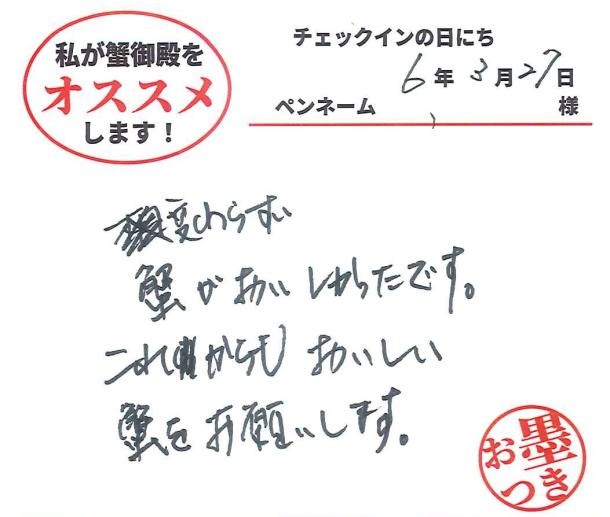 私が蟹御殿を
オススメ
します！
チェックインの日にち
6年3月27日
ペンネーム 様
変わらず
蟹がおいしかったです。
これからも おいしい
蟹をお願いします。
お墨
つき